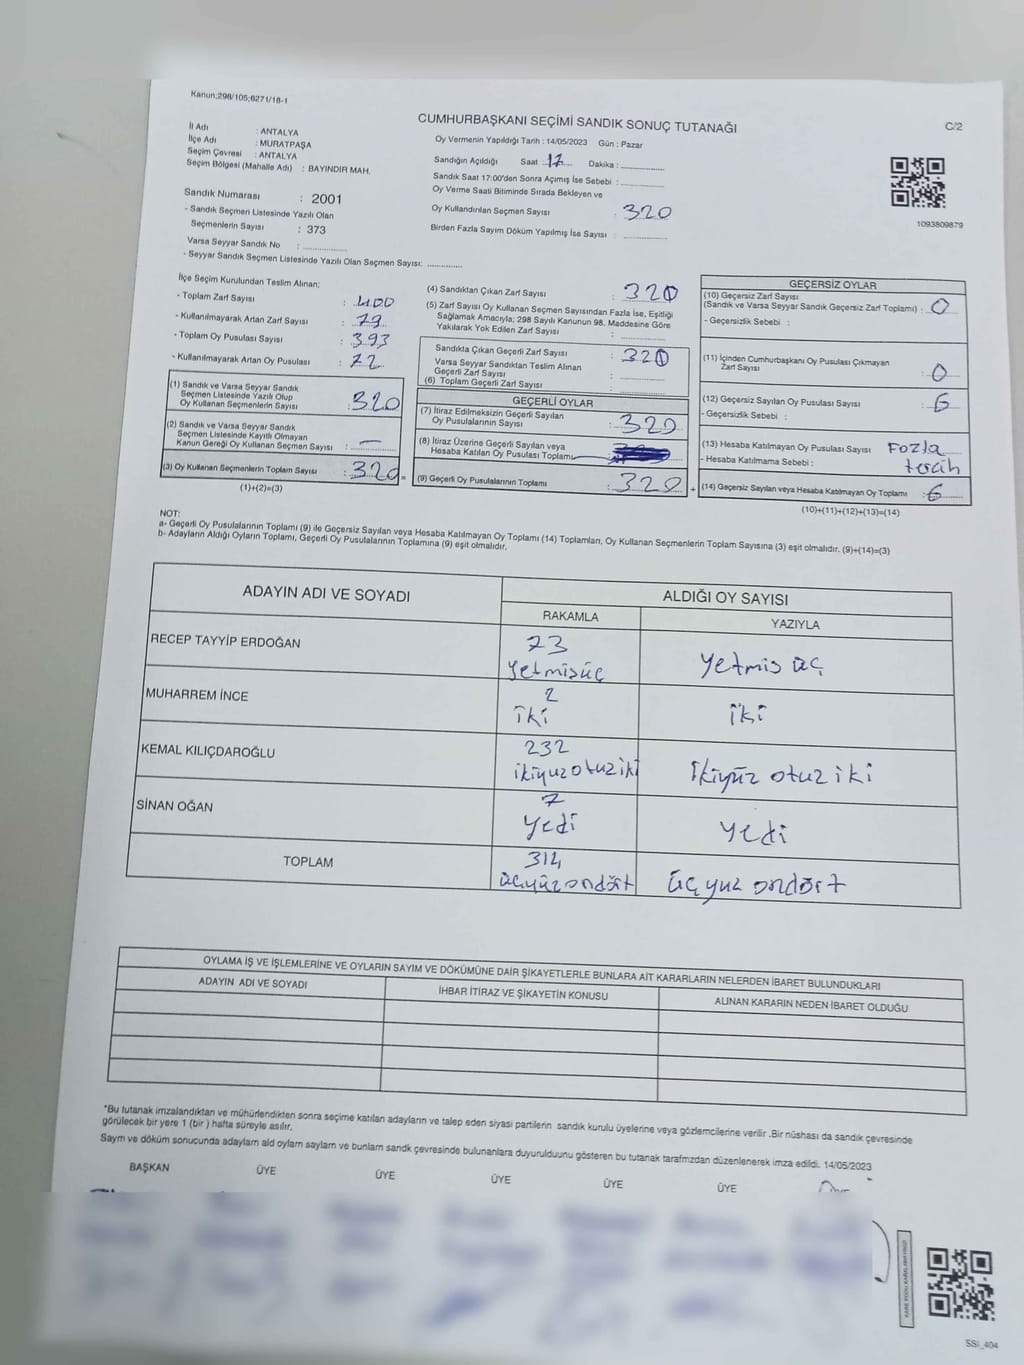 Kanun;298/105;6271/18-1
CUMHURBAŞKANI SEÇİMİ SANDIK SONUÇ TUTANAĞI
C/2
İl Adı : ANTALYA
İlçe Adı : MURATPAŞA
Seçim Çevresi : ANTALYA
Seçim Bölgesi (Mahalle Adı) : BAYINDIR MAH.
Sandık Numarası : 2001
- Sandık Seçmen Listesinde Yazılı Olan
Seçmenlerin Sayısı : 373
Varsa Seyyar Sandık No : ............
- Seyyar Sandık Seçmen Listesinde Yazılı Olan Seçmen Sayısı: ............
Oy Vermenin Yapıldığı Tarih : 14/05/2023 Gün : Pazar
Sandığın Açıldığı Saat : 17 Dakika : ............
Sandık Saat 17:00'den Sonra Açımış İse Sebebi : ............
Oy Verme Saati Bitiminde Sırada Bekleyen ve
Oy Kullandırılan Seçmen Sayısı : 320
Birden Fazla Sayım Döküm Yapılmış İse Sayısı : ............
1093809879
İlçe Seçim Kurulundan Teslim Alınan;
- Toplam Zarf Sayısı : 400
- Kullanılmayarak Artan Zarf Sayısı : 79
- Toplam Oy Pusulası Sayısı : 393
- Kullanılmayarak Artan Oy Pusulası : 72
(1) Sandık ve Varsa Seyyar Sandık
Seçmen Listesinde Yazılı Olup
Oy Kullanan Seçmenlerin Sayısı : 320
(2) Sandık ve Varsa Seyyar Sandık
Seçmen Listesinde Kayıtlı Olmayan
Kanun Gereği Oy Kullanan Seçmen Sayısı : —
(3) Oy Kullanan Seçmenlerin Toplam Sayısı : 320 =
(1)+(2)=(3)
(4) Sandıktan Çıkan Zarf Sayısı : 320
(5) Zarf Sayısı Oy Kullanan Seçmen Sayısından Fazla İse, Eşitliği
Sağlamak Amacıyla; 298 Sayılı Kanunun 98. Maddesine Göre
Yakılarak Yok Edilen Zarf Sayısı : ............
Sandıkta Çıkan Geçerli Zarf Sayısı : 320
Varsa Seyyar Sandıktan Teslim Alınan
Geçerli Zarf Sayısı : ............
(6) Toplam Geçerli Zarf Sayısı : ............
GEÇERLİ OYLAR
(7) İtiraz Edilmeksizin Geçerli Sayılan
Oy Pusulalarının Sayısı : 320
(8) İtiraz Üzerine Geçerli Sayılan veya
Hesaba Katılan Oy Pusulası Toplamı
(9) Geçerli Oy Pusulalarının Toplamı : 320 +
GEÇERSİZ OYLAR
(10) Geçersiz Zarf Sayısı
(Sandık ve Varsa Seyyar Sandık Geçersiz Zarf Toplamı) : 0
- Geçersizlik Sebebi :
(11) İçinden Cumhurbaşkanı Oy Pusulası Çıkmayan
Zarf Sayısı : 0
(12) Geçersiz Sayılan Oy Pusulası Sayısı : 6
- Geçersizlik Sebebi :
(13) Hesaba Katılmayan Oy Pusulası Sayısı : Fozla
- Hesaba Katılmama Sebebi : tercih
(14) Geçersiz Sayılan veya Hesaba Katılmayan Oy Toplamı : 6
(10)+(11)+(12)+(13)=(14)
NOT:
a- Geçerli Oy Pusulalarının Toplamı (9) ile Geçersiz Sayılan veya Hesaba Katılmayan Oy Toplamı (14) Toplamları, Oy Kullanan Seçmenlerin Toplam Sayısına (3) eşit olmalıdır. (9)+(14)=(3)
b- Adayların Aldığı Oyların Toplamı, Geçerli Oy Pusulalarının Toplamına (9) eşit olmalıdır.
ADAYIN ADI VE SOYADI
ALDIĞI OY SAYISI
RAKAMLA YAZIYLA
RECEP TAYYİP ERDOĞAN 73 yetmisüç yetmis üç
MUHARREM İNCE 2 iki iki
KEMAL KILIÇDAROĞLU 232 ikiyuzotuziki ikiyüz otuz iki
SİNAN OĞAN 7 yedi yedi
TOPLAM 314 üçyüzondört üçyuz ondört
OYLAMA İŞ VE İŞLEMLERİNE VE OYLARIN SAYIM VE DÖKÜMÜNE DAİR ŞİKAYETLERLE BUNLARA AİT KARARLARIN NELERDEN İBARET BULUNDUKLARI
ADAYIN ADI VE SOYADI İHBAR İTİRAZ VE ŞİKAYETİN KONUSU ALINAN KARARIN NEDEN İBARET OLDUĞU
*Bu tutanak imzalandıktan ve mühürlendikten sonra seçime katılan adayların ve talep eden siyasi partilerin sandık kurulu üyelerine veya gözlemcilerine verilir .Bir nüshası da sandık çevresinde
görülecek bir yere 1 (bir ) hafta süreyle asılır.
Sayım ve döküm sonucunda adaylam ald oylam saylam ve bunlam sandk çevresinde bulunanlara duyurulduunu gösteren bu tutanak tarafmzdan düzenlenerek imza edildi. 14/05/2023
BAŞKAN ÜYE ÜYE ÜYE ÜYE ÜYE
SSI_404